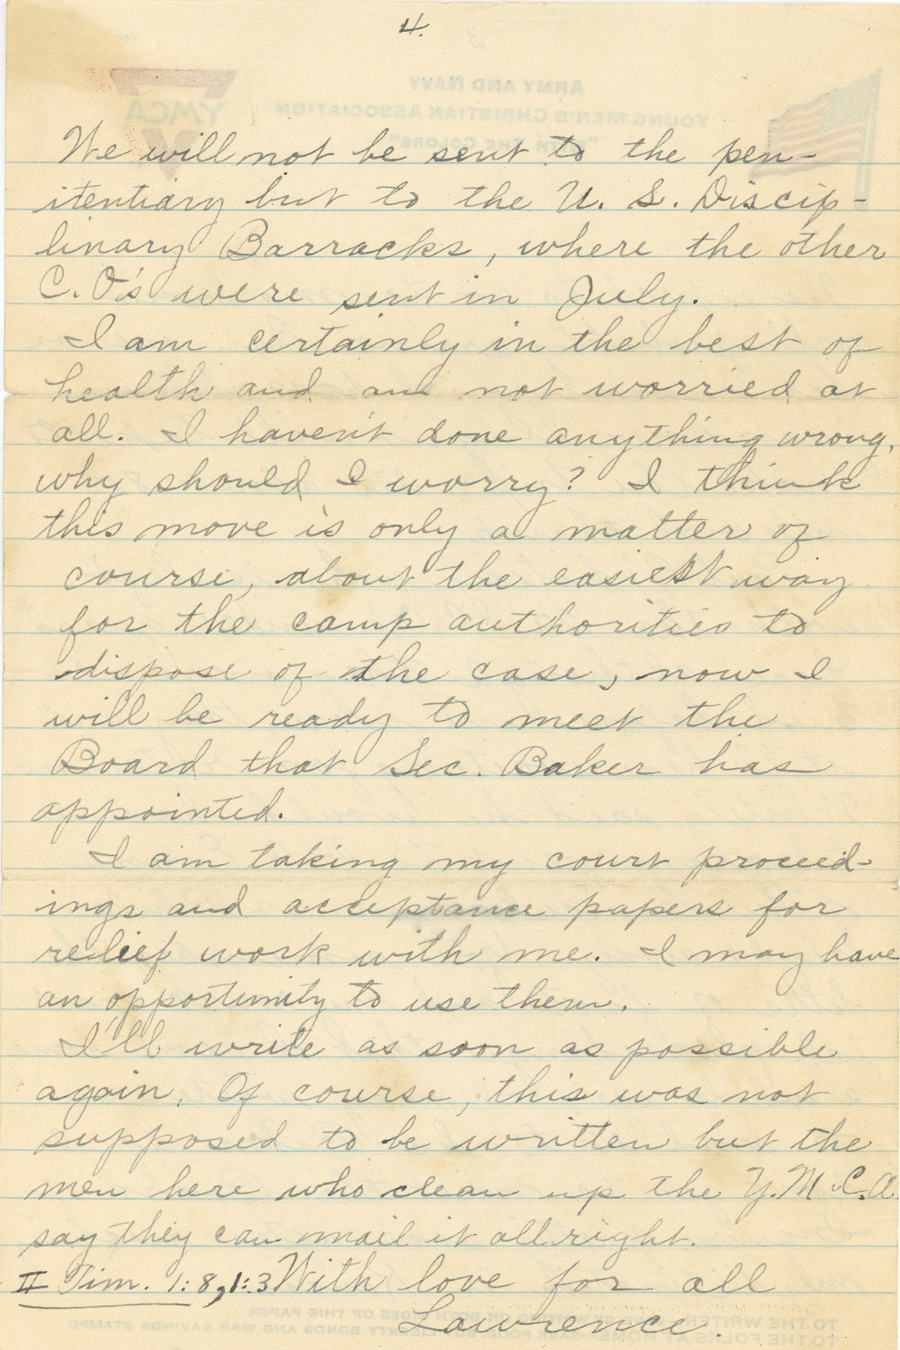 4.
We will not be sent to the pen-
itentiary but to the U. S. Discip-
linary Barracks, where the other
C. O's were sent in July.
I am certainly in the best of
health and am not worried at
all. I haven't done anything wrong,
why should I worry? I think
this move is only a matter of
course, about the easiest way
for the camp authorities to
dispose of the case, now I
will be ready to meet the
Board that Sec. Baker has
appointed.
I am taking my court proceed-
ings and acceptance papers for
relief work with me. I may have
an opportunity to use them.
I'll write as soon as possible
again. Of course, this was not
supposed to be written but the
men here who clean up the Y.M.C.A.
say they can mail it all right.
II Tim. 1:8, 1:3 With love for all
Lawrence.
ARMY AND NAVY
YOUNG MEN'S CHRISTIAN ASSOCIATION
"WITH THE COLORS"
YMCA